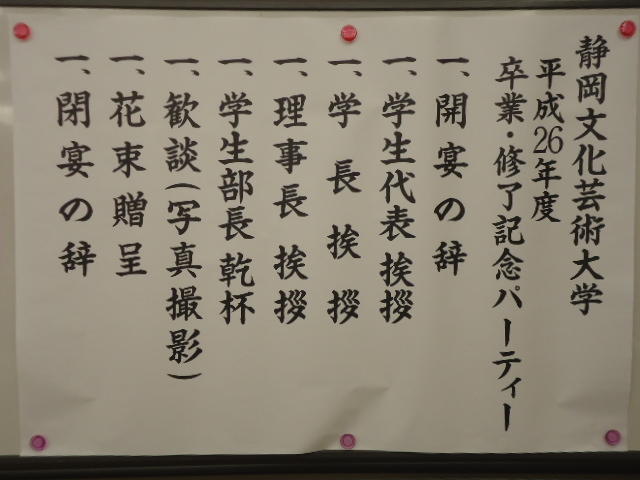 静岡文化芸術大学
平成26年度
卒業・修了記念パーティー
一、開宴の辞
一、学生代表挨拶
一、学長挨拶
一、理事長挨拶
一、学生部長乾杯
一、歓談(写真撮影)
一、花束贈呈
一、閉宴の辞